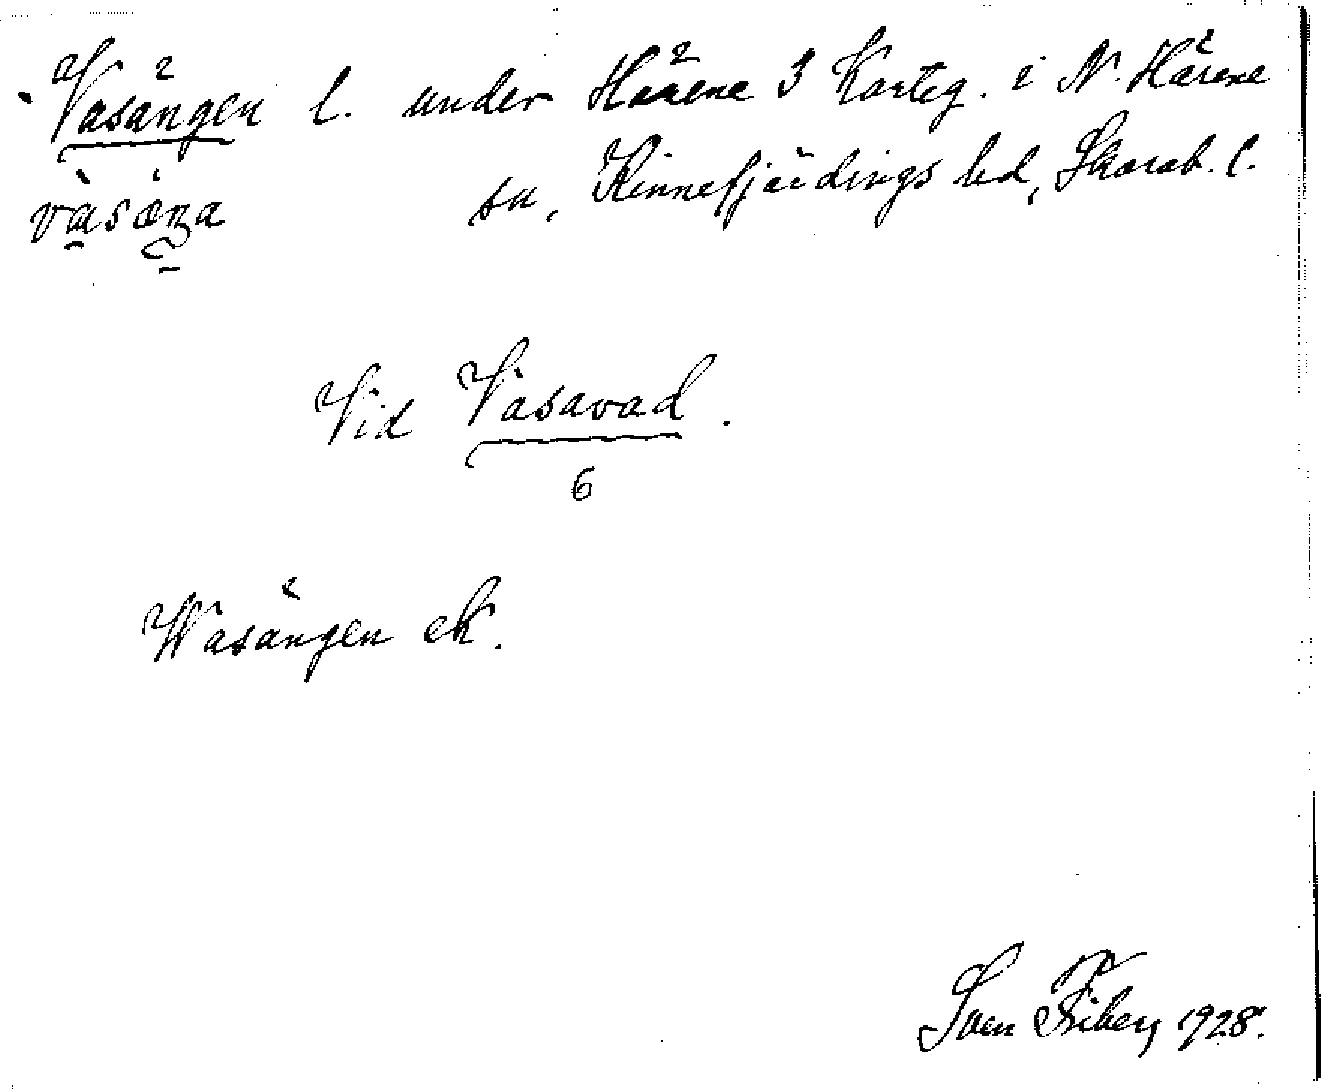 Vasängen l. under Härene 3 Karteg. i N. Härene
sn, Kinnefjärdings hd, Skarab. l.
vàsæŋa
Vid Vasavad.
6
Wasängen ek.
Sven Fiberg 1928.